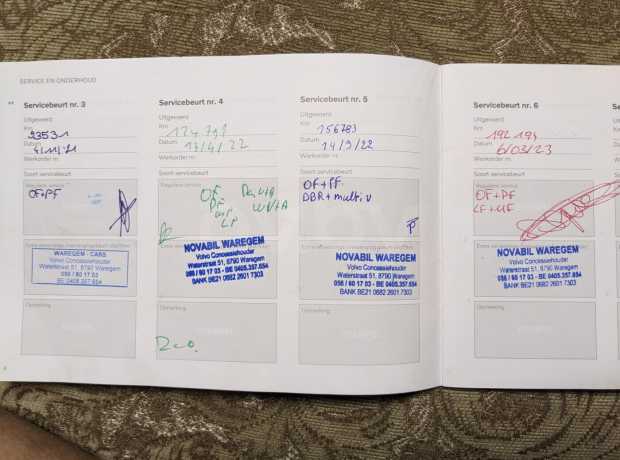 SERVICE EN ONDERHOUD
Servicebeurt nr. 3
Uitgevoerd
Km
93531
Datum
4/11/21
Werkorder nr.
Soort servicebeurt
OF+PF
WAREGEM - CARS
Volvo Concessiehouder
Waterstraat 51, 8790 Waregem
056 / 60 17 03
BE 0405.357.654
Opmerking
Servicebeurt nr. 4
Uitgevoerd
Km
124791
Datum
14/4/22
Werkorder nr.
Soort servicebeurt
Reguliere service
OF
PF
LF
NOVABIL WAREGEM
Volvo Concessiehouder
Waterstraat 51, 8790 Waregem
056 / 60 17 03 - BE 0405.357.654
BANK BE21 0682 2601 7303
Opmerking
Servicebeurt nr. 5
Uitgevoerd
Km
156783
Datum
14/9/22
Werkorder nr.
Soort servicebeurt
OF+PF
DBR+multi v
NOVABIL WAREGEM
Volvo Concessiehouder
Waterstraat 51, 8790 Waregem
056 / 60 17 03 - BE 0405.357.654
BANK BE21 0682 2601 7303
Opmerking
Servicebeurt nr. 6
Uitgevoerd
Km
192 194
Datum
6/03/23
Werkorder nr.
Soort servicebeurt
Reguliere service
OF+PF
LF+MF
NOVABIL WAREGEM
Volvo Concessiehouder
Waterstraat 51, 8790 Waregem
056 / 60 17 03 - BE 0405.357.654
BANK BE21 0682 2601 7303
Opmerking